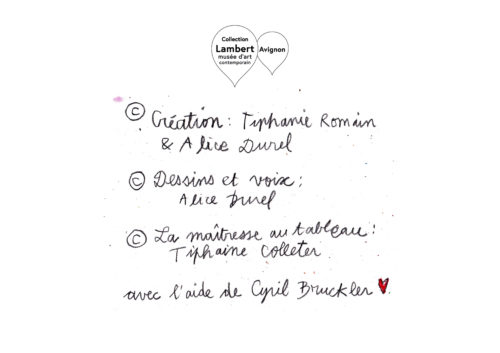 Collection
Lambert
musée d'art
contemporain
Avignon
© Création : Tiphanie Romain
& Alice Durel
© Dessins et voix :
Alice Durel
© La maîtresse au tableau :
Tiphaine Colleter
avec l'aide de Cyril Bruckler